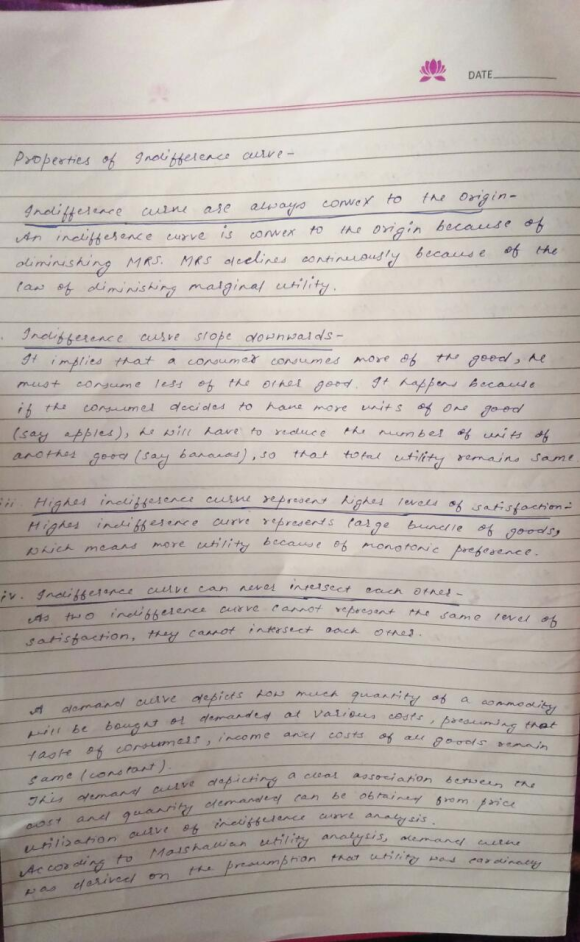 DATE
Properties of Indifference curve-
Indifference curve are always convex to the origin-
An indifference curve is convex to the origin because of
diminishing MRS. MRS declines continuously because of the
law of diminishing marginal utility.
Indifference curve slope downwards-
It implies that a consumer consumes more of the good, he
must consume less of the other good. It happens because
if the consumer decides to have more units of one good
(say apples), he will have to reduce the number of units of
another good (say bananas), so that total utility remains same
iii. Higher indifference curve represent higher levels of satisfaction-
Higher indifference curve represents large bundle of goods,
which means more utility because of monotonic preference.
iv. Indifference curve can never intersect each other-
As two indifference curve cannot represent the same level of
satisfaction, they cannot intersect each other.
A demand curve depicts how much quantity of a commodity
will be bought or demanded at various costs, presuming that
taste of consumers, income and costs of all goods remain
same (constant).
This demand curve depicting a clear association between the
cost and quantity demanded can be obtained from price
utilisation curve of indifference curve analysis.
According to Marshallian utility analysis, demand curve
was derived on the presumption that utility was cardinally